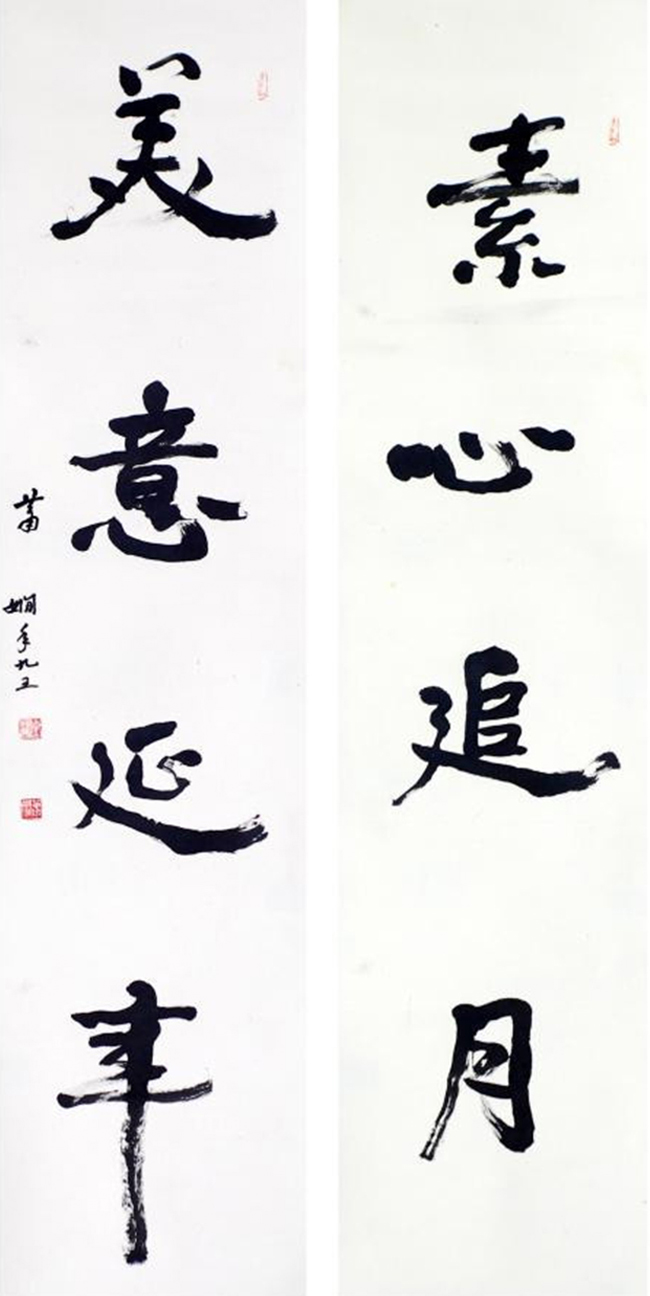 素心追月
美意延年
萧娴年九五